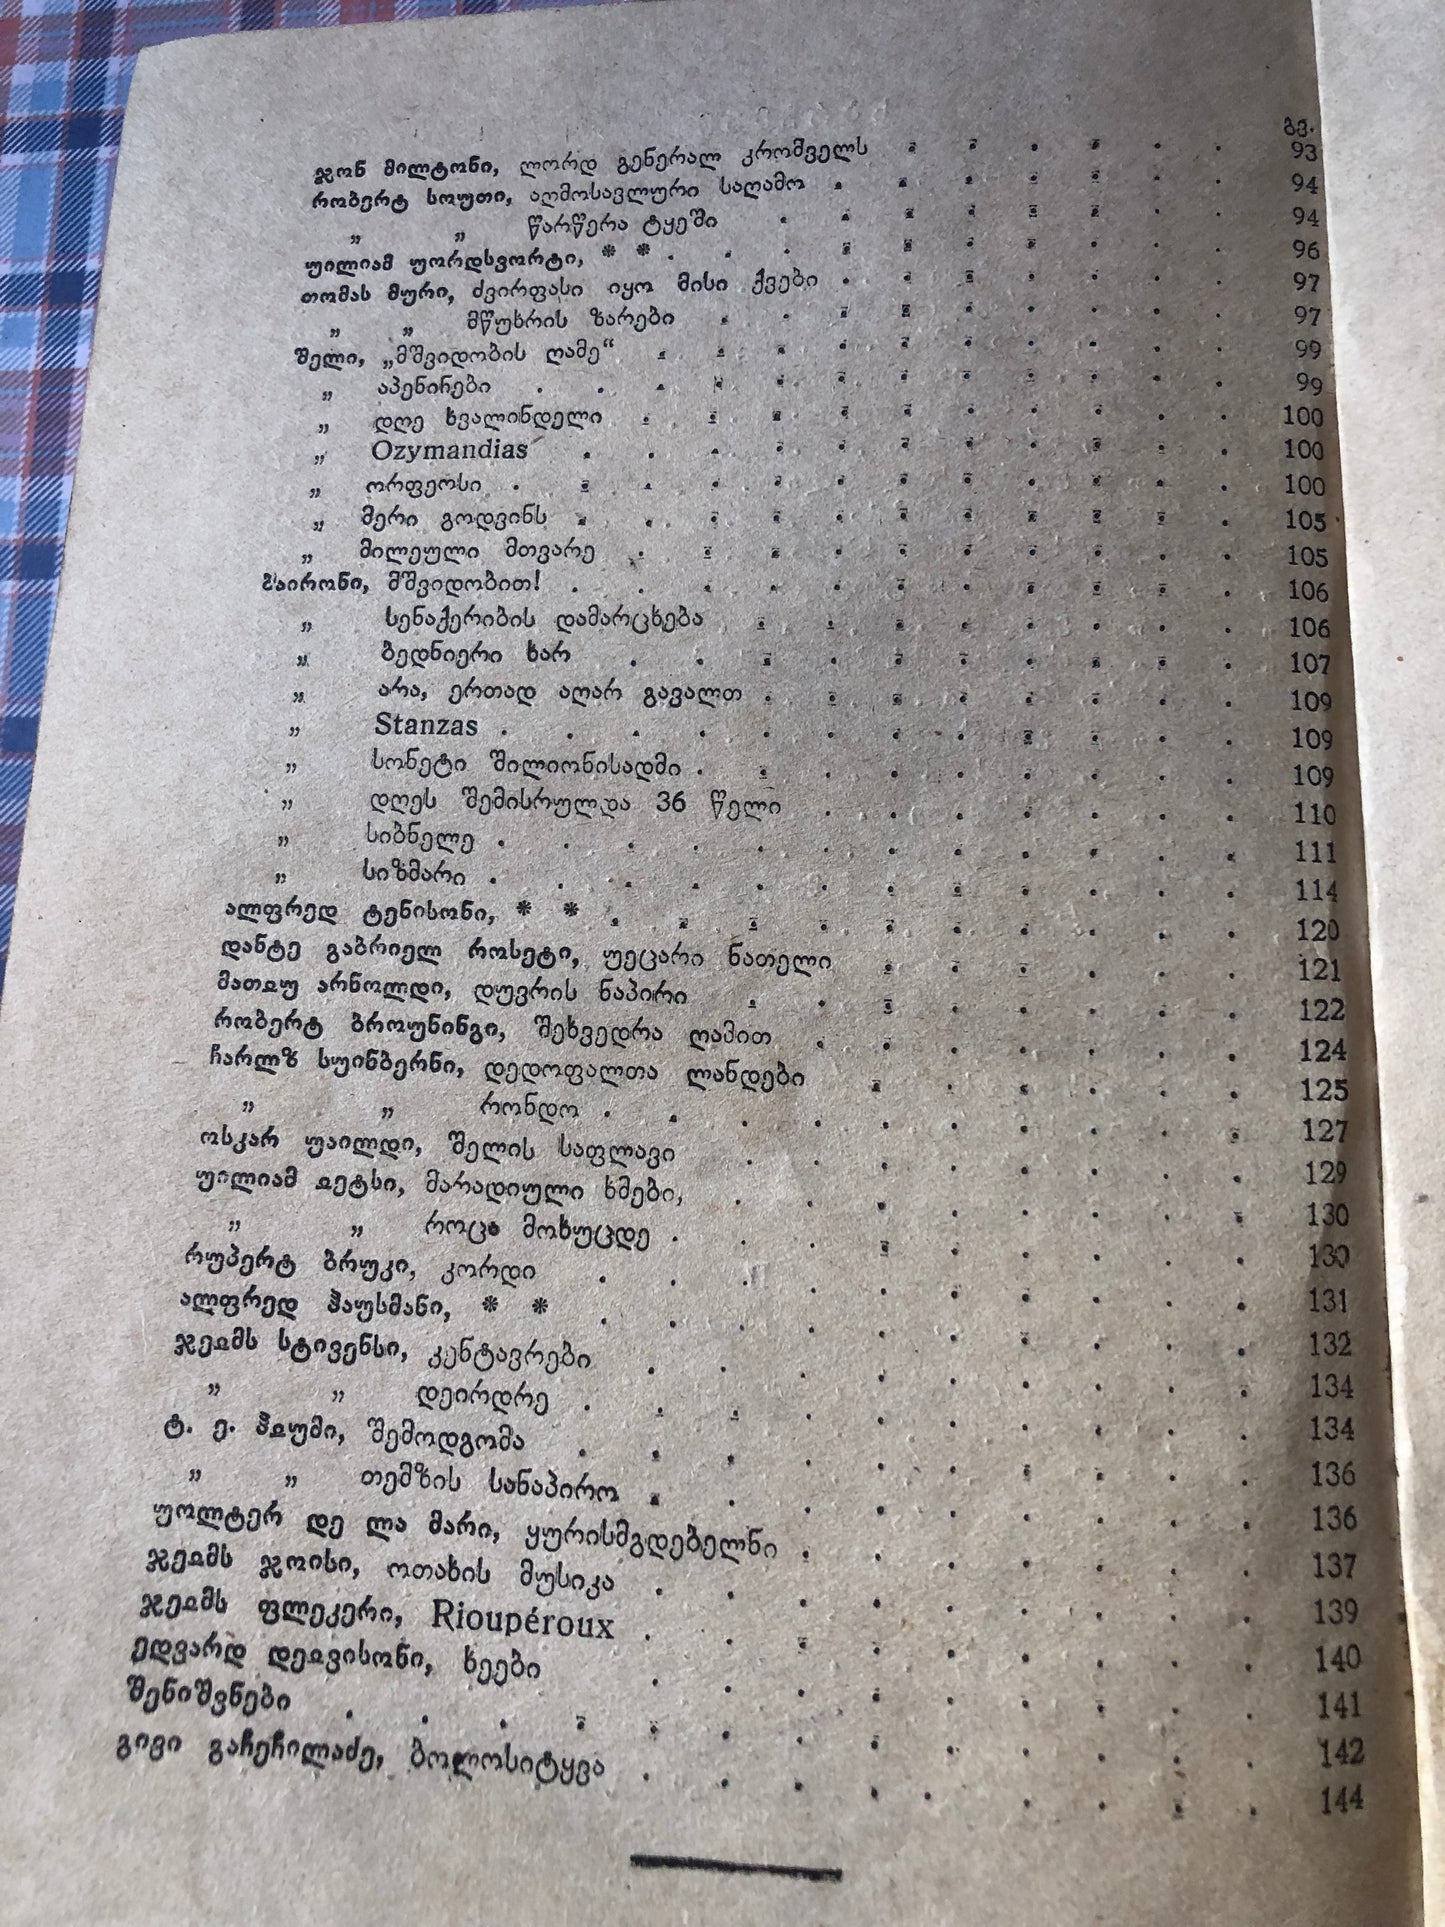 გვ.
ჯონ მილტონი, ლორდ გენერალ კრომველს . . . . . . 93
რობერტ სოუთი, აღმოსავლური საღამო . . . . . . . 94
„ „ წარწერა ტყეში . . . . . . . . 94
უილიამ უორდსვორტი, * * . . . . . . . . . 96
თომას მური, ძვირფასი იყო მისი ქვები . . . . . . . 97
„ „ მწუხრის ზარები . . . . . . . . . 97
შელი, „მშვიდობის ღამე“ . . . . . . . . . . 99
„ აპენინები . . . . . . . . . . . . 99
„ დღე ხვალინდელი . . . . . . . . . . 100
„ Ozymandias . . . . . . . . . . . 100
„ ორფეოსი . . . . . . . . . . . . 100
„ მერი გოდვინს . . . . . . . . . . . 105
„ მილეული მთვარე . . . . . . . . . . 105
ბაირონი, მშვიდობით! . . . . . . . . . . . 106
„ სენაქერიბის დამარცხება . . . . . . . . 106
„ ბედნიერი ხარ . . . . . . . . . . 107
„ არა, ერთად აღარ გავალთ . . . . . . . . 109
„ Stanzas . . . . . . . . . . . . 109
„ სონეტი შილიონისადმი . . . . . . . . . 109
„ დღეს შემისრულდა 36 წელი . . . . . . . 110
„ სიბნელე . . . . . . . . . . . . 111
„ სიზმარი . . . . . . . . . . . . 114
ალფრედ ტენისონი, * * . . . . . . . . . . 120
დანტე გაბრიელ როსეტი, უეცარი ნათელი . . . . . . 121
მათჲუ არნოლდი, დუვრის ნაპირი . . . . . . . . 122
რობერტ ბროუნინგი, შეხვედრა ღამით . . . . . . . 124
ჩარლზ სუინბერნი, დედოფალთა ლანდები . . . . . . 125
„ „ რონდო . . . . . . . . . . 127
ოსკარ უაილდი, შელის საფლავი . . . . . . . . 129
უილიამ ჲეტსი, მარადიული ხმები, . . . . . . . . 130
„ „ როცა მოხუცდე . . . . . . . . . 130
რუპერტ ბრუკი, კორდი . . . . . . . . . . 131
ალფრედ ჰაუსმანი, * * . . . . . . . . . . 132
ჯეჲმს სტივენსი, კენტავრები . . . . . . . . . 134
„ „ დეირდრე . . . . . . . . . . 134
ტ. ე. ჰჲუმი, შემოდგომა . . . . . . . . . . 136
„ „ თემზის სანაპირო . . . . . . . . . 136
უოლტერ დე ლა მარი, ყურისმგდებელნი . . . . . . . 137
ჯეჲმს ჯოისი, ოთახის მუსიკა . . . . . . . . . 139
ჯეჲმს ფლეკერი, Rioupéroux . . . . . . . . . 140
ედვარდ დეჲვისონი, ხეები . . . . . . . . . . 141
შენიშვნები . . . . . . . . . . . . . 142
გივი გაჩეჩილაძე, ბოლოსიტყვა . . . . . . . . . 144